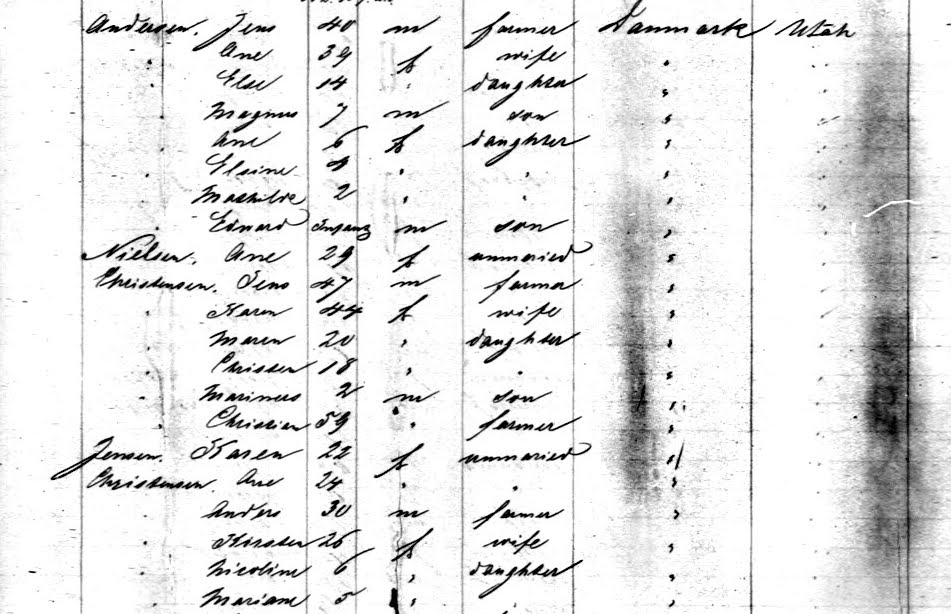 Andersen. Jens 40 m farmer Danmark Utah
Ane 39 f wife "
" Else 14 " daughter "
Magnus 7 m son "
" Ane 6 f daughter "
Elsine 4 " " "
" Mathilde 2 " " "
Edvard Infant m son "
Nielsen. Ane 29 f unmaried "
Christensen. Jens 47 m farmer "
" Karen 44 f wife "
" Maren 20 " daughter "
" 18 " " "
" 2 m son "
" Christian 59 " farmer "
Jensen. Karen 22 f unmaried "
Christensen. Ane 24 " " "
" Anders 30 m farmer "
" Kirsten 26 f wife "
" Nicoline 6 " daughter "
" Mariane 5 " " "